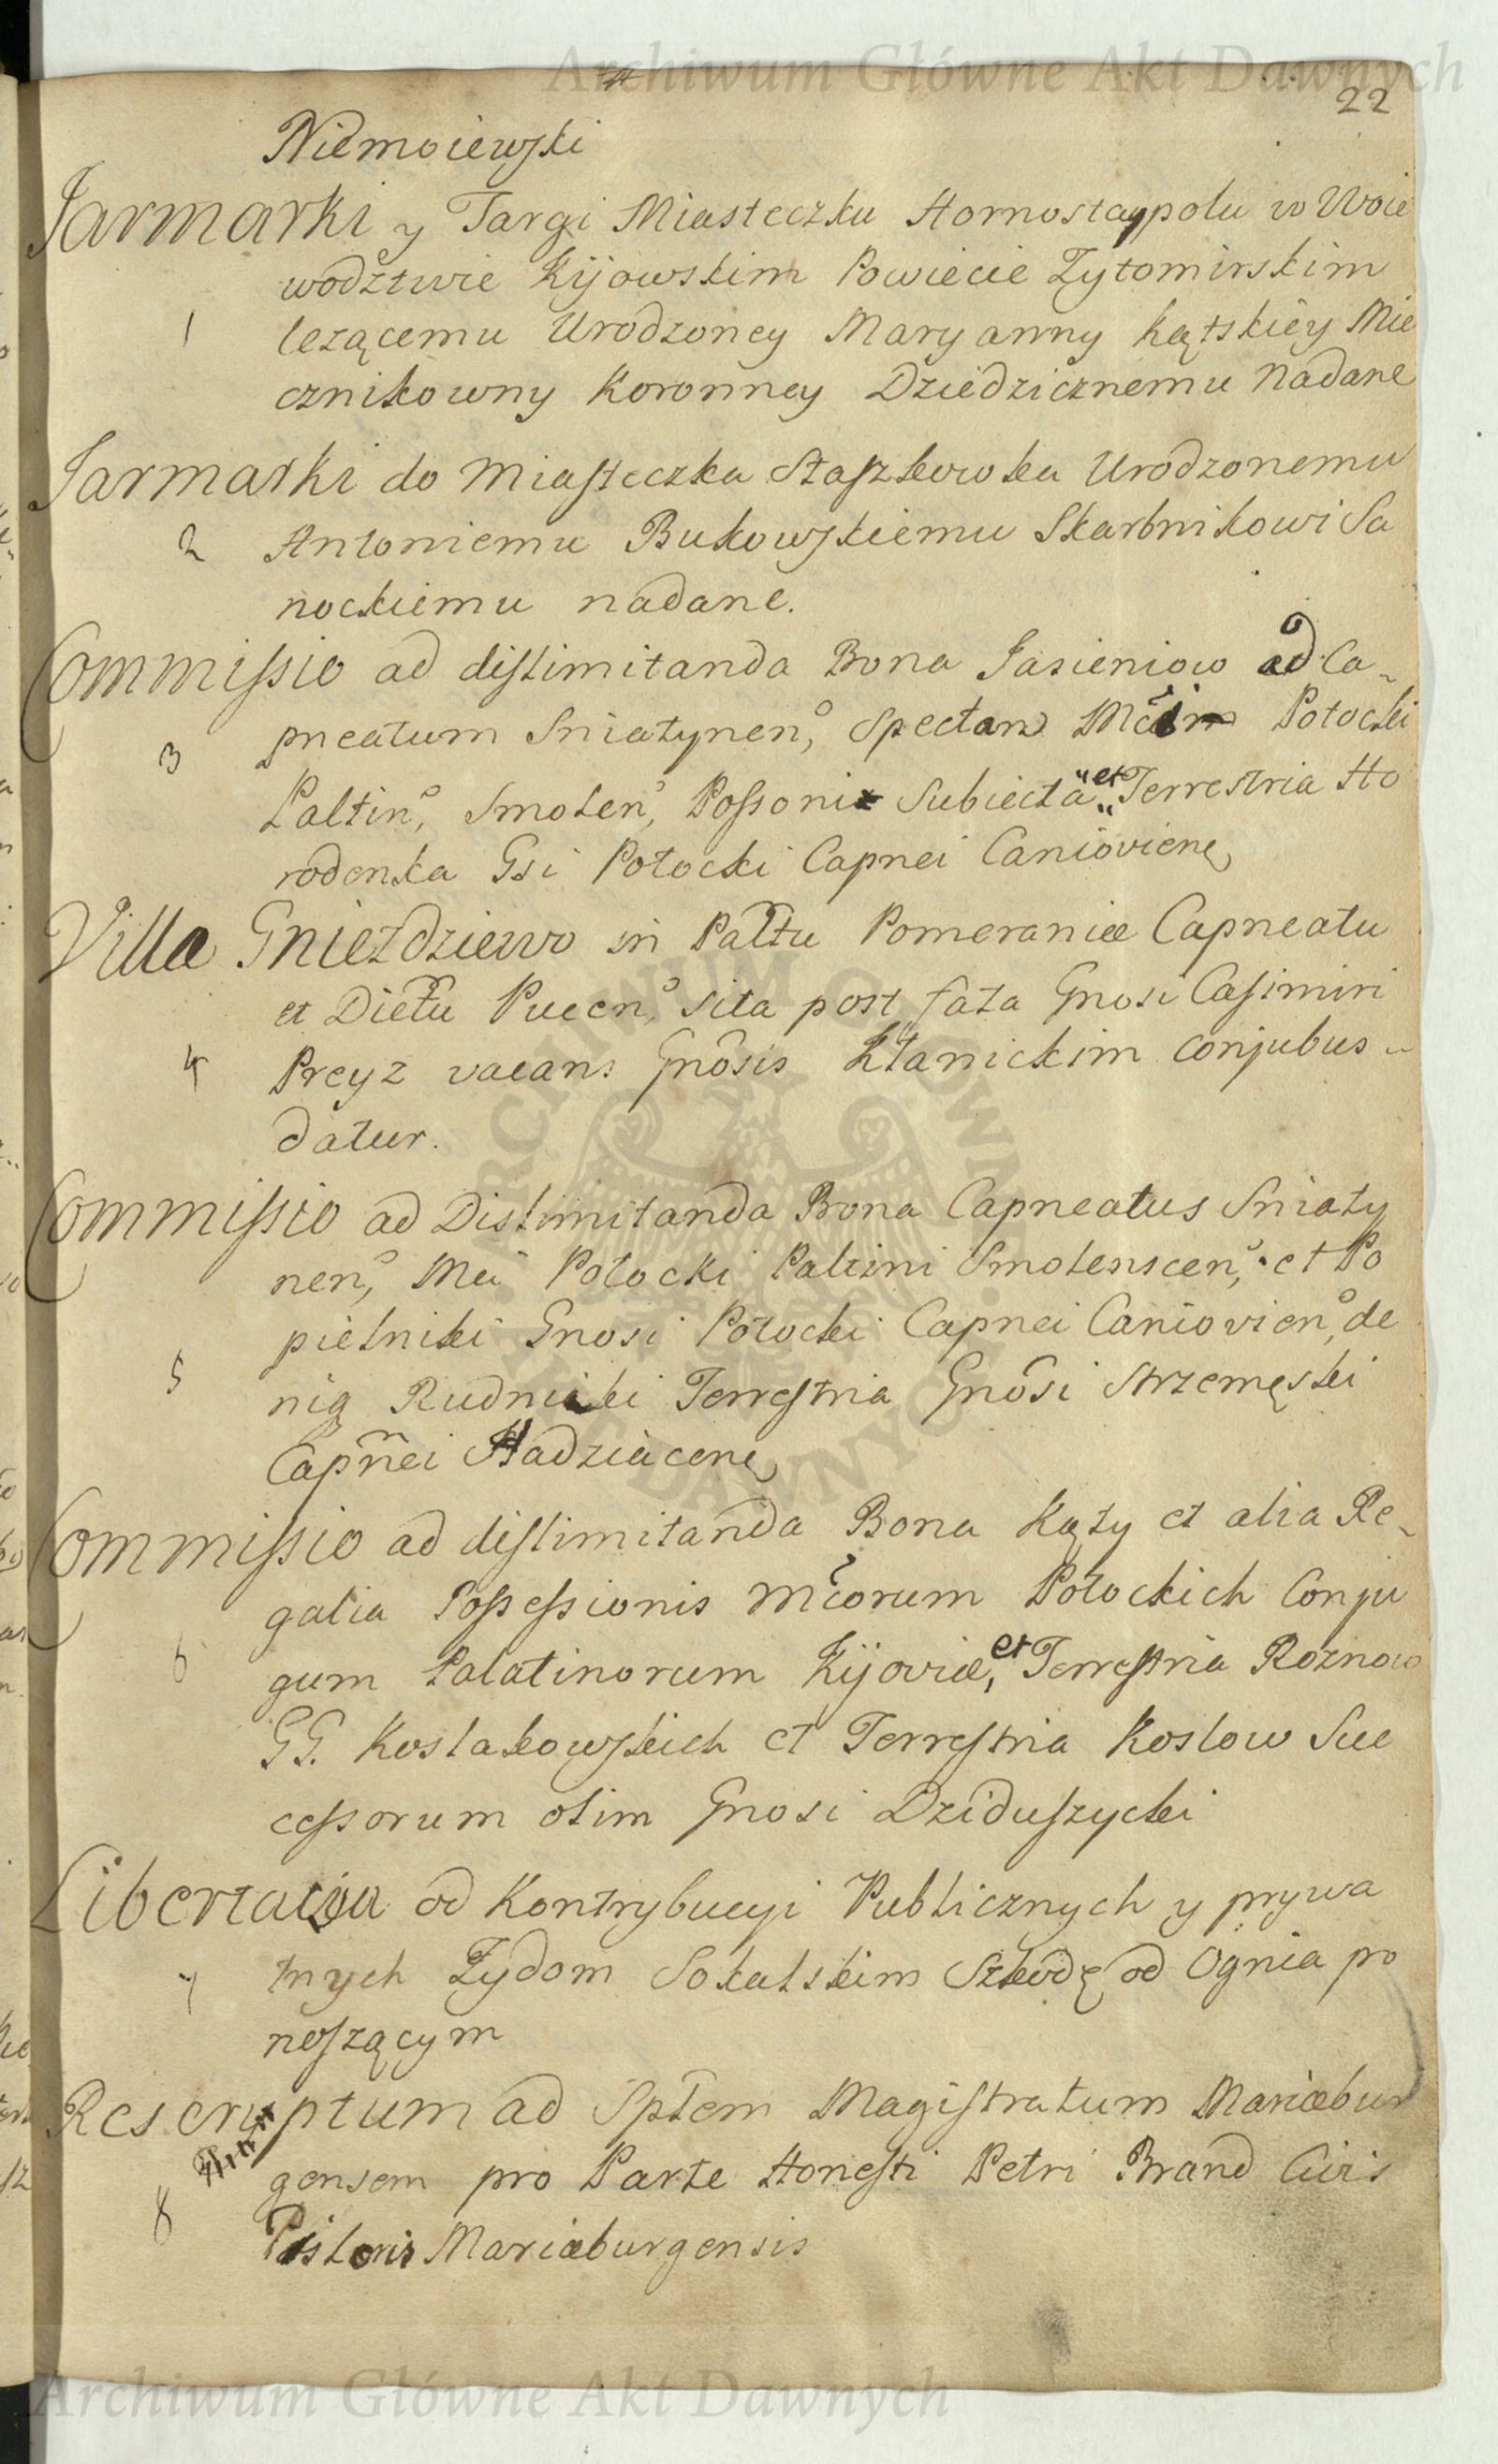 Archiwum Główne Akt Dawnych
22
Niemoiewski
Jarmarki y Targi Miasteczku Hornostaypolu w Woie
wodztwie Kijowskim Powiecie Zytomirskim
1 lezącemu Urodzoney Maryanny Kątskiey Mie
cznikowny Koronney Dziedzicznemu Nadane
Jarmarki do Miasteczka Staszkowka Urodzonemu
2 Antoniemu Bukowskiemu Skarbnikowi Sa
nockiemu nadane.
Commissio ad dislimitanda Bona Jasieniow ad Ca-
3 pneatum Sniatynen, Spectan Potocki
Paltin, Smolen, Possoni Subiecta et Terrestria Ho
rodenka Gsi Potocki Capnei Caniovien
Villa Gniezdziewo in Paltu Pomeraniæ Capneatu
et Dictu Pucen, sita post fata Gnosi Casimiri
4 Preyz vacans Gnosis Kłanickim conjubus
datur.
Commissio ad Dislimitanda Bona Capneatus Sniaty
nen, Mci Potocki Palitini Smolenscen, et Po
pielniki Gnosi Potocki Capnei Caniovien, de
5 niq Rudniki Terrestria Gnosi Strzemęski
Capnei Hadziacen
Commissio ad dislimitanda Bona Kąty et alia Re-
galia Possessionis Mcorum Potockich Conju
6 gum Palatinorum Kijoviæ, et Terrestria Roznow
GG. Koslakowskich et Terrestria Koslow Suc
cessorum olim Gnosi Dziduszycki
Libertacija od Kontrybucyi Publicznych y prywa
7 tnych Zydom Sokalskim Szkodę od Ognia po
noszącym
Rescryptum ad Spłem Magistratum Mariæbur
gensem pro Parte Honesti Petri Brand Civis
8 Pistoris Mariæburgensis
Archiwum Główne Akt Dawnych